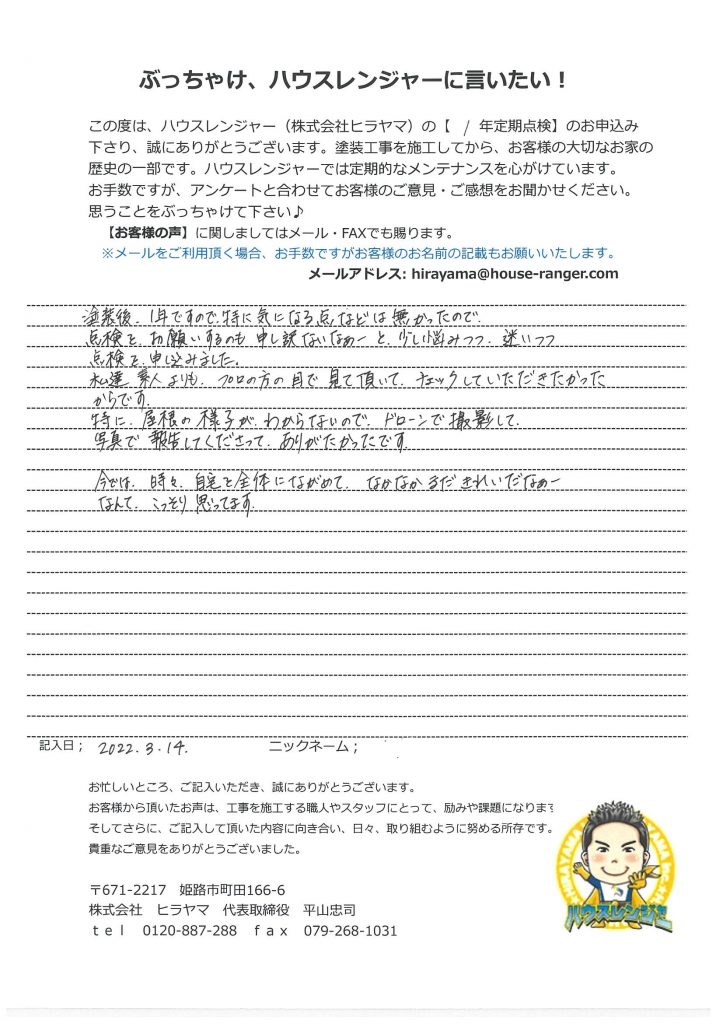 ぶっちゃけ、ハウスレンジャーに言いたい！
この度は、ハウスレンジャー（株式会社ヒラヤマ）の【 / 年定期点検】のお申込み
下さり、誠にありがとうございます。塗装工事を施工してから、お客様の大切なお家の
歴史の一部です。ハウスレンジャーでは定期的なメンテナンスを心がけています。
お手数ですが、アンケートと合わせてお客様のご意見・ご感想をお聞かせください。
思うことをぶっちゃけて下さい♪
【お客様の声】に関しましてはメール・FAXでも賜ります。
※メールをご利用頂く場合、お手数ですがお客様のお名前の記載もお願いいたします。
メールアドレス: hirayama@house-ranger.com
塗装後、1年ですので、特に気になる点などは無かったので、
点検を、お願いするのも申し訳ないなぁーと、少し悩みつつ、迷いつつ
点検を、申し込みました。
私達素人よりも、プロの方の目で見て頂いて、チェックしていただきたかった
からです。
特に、屋根の様子が、わからないので、ドローンで撮影して、
写真で報告してくださって、ありがたかったです。
今では、時々、自宅を全体にながめて、なかなかまだきれいだなぁー
なんて、こっそり思ってます。
記入日； 2022.3.14. ニックネーム；
お忙しいところ、ご記入いただき、誠にありがとうございます。
お客様から頂いたお声は、工事を施工する職人やスタッフにとって、励みや課題になります
そしてさらに、ご記入して頂いた内容に向き合い、日々、取り組むように努める所存です。
貴重なご意見をありがとうございました。
〒671-2217 姫路市町田166-6
株式会社 ヒラヤマ 代表取締役 平山忠司
ｔｅｌ 0120-887-288 ｆａｘ 079-268-1031
ハウスレンジャー